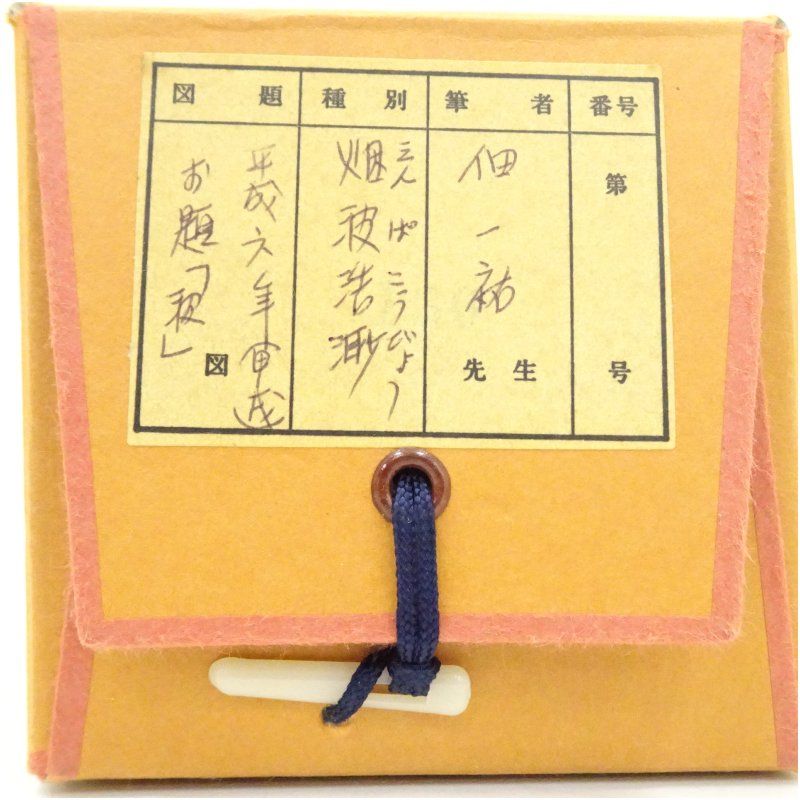 番号
第 号
筆者
佃一祐
先生
種別
えんぱこうびょう
烟波浩渺
図題
平成六年甲戌
お題「波」
図